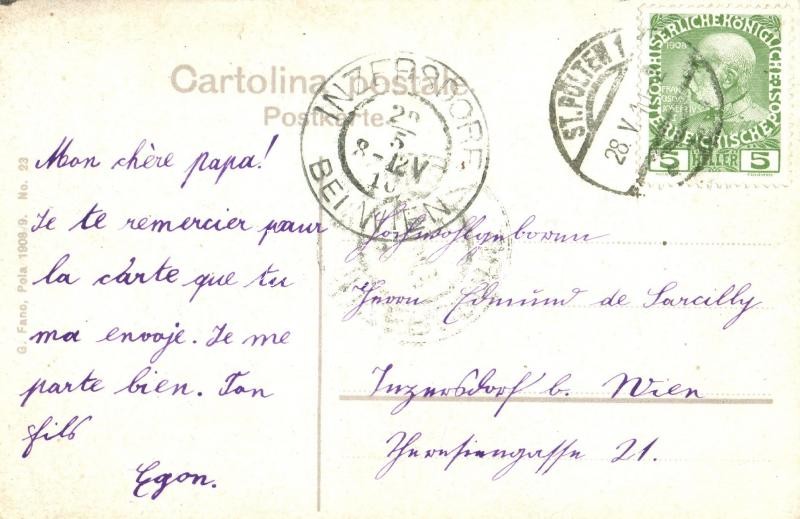 Cartolina postale
Postkarte.
G. Fano, Pola 1908/9. No. 23
Mon chère papa!
Je te remercier pour
la cárte que tu
ma envoje. Je me
parte bien. Ton
fils
Egon.
INZERSDORF
BEI WIEN
8-12V
ST. PÖLTEN 1
28. V. 1
KAISERLICHEKÖNIGLICHE
ÖSTERREICHISCHE POST
1908
FRANZ
JOSEF I
5 HELLER 5
Hochwohlgeboren
Herrn Edmund de Sarcilly
Inzersdorf b. Wien
Theresiengasse 21.